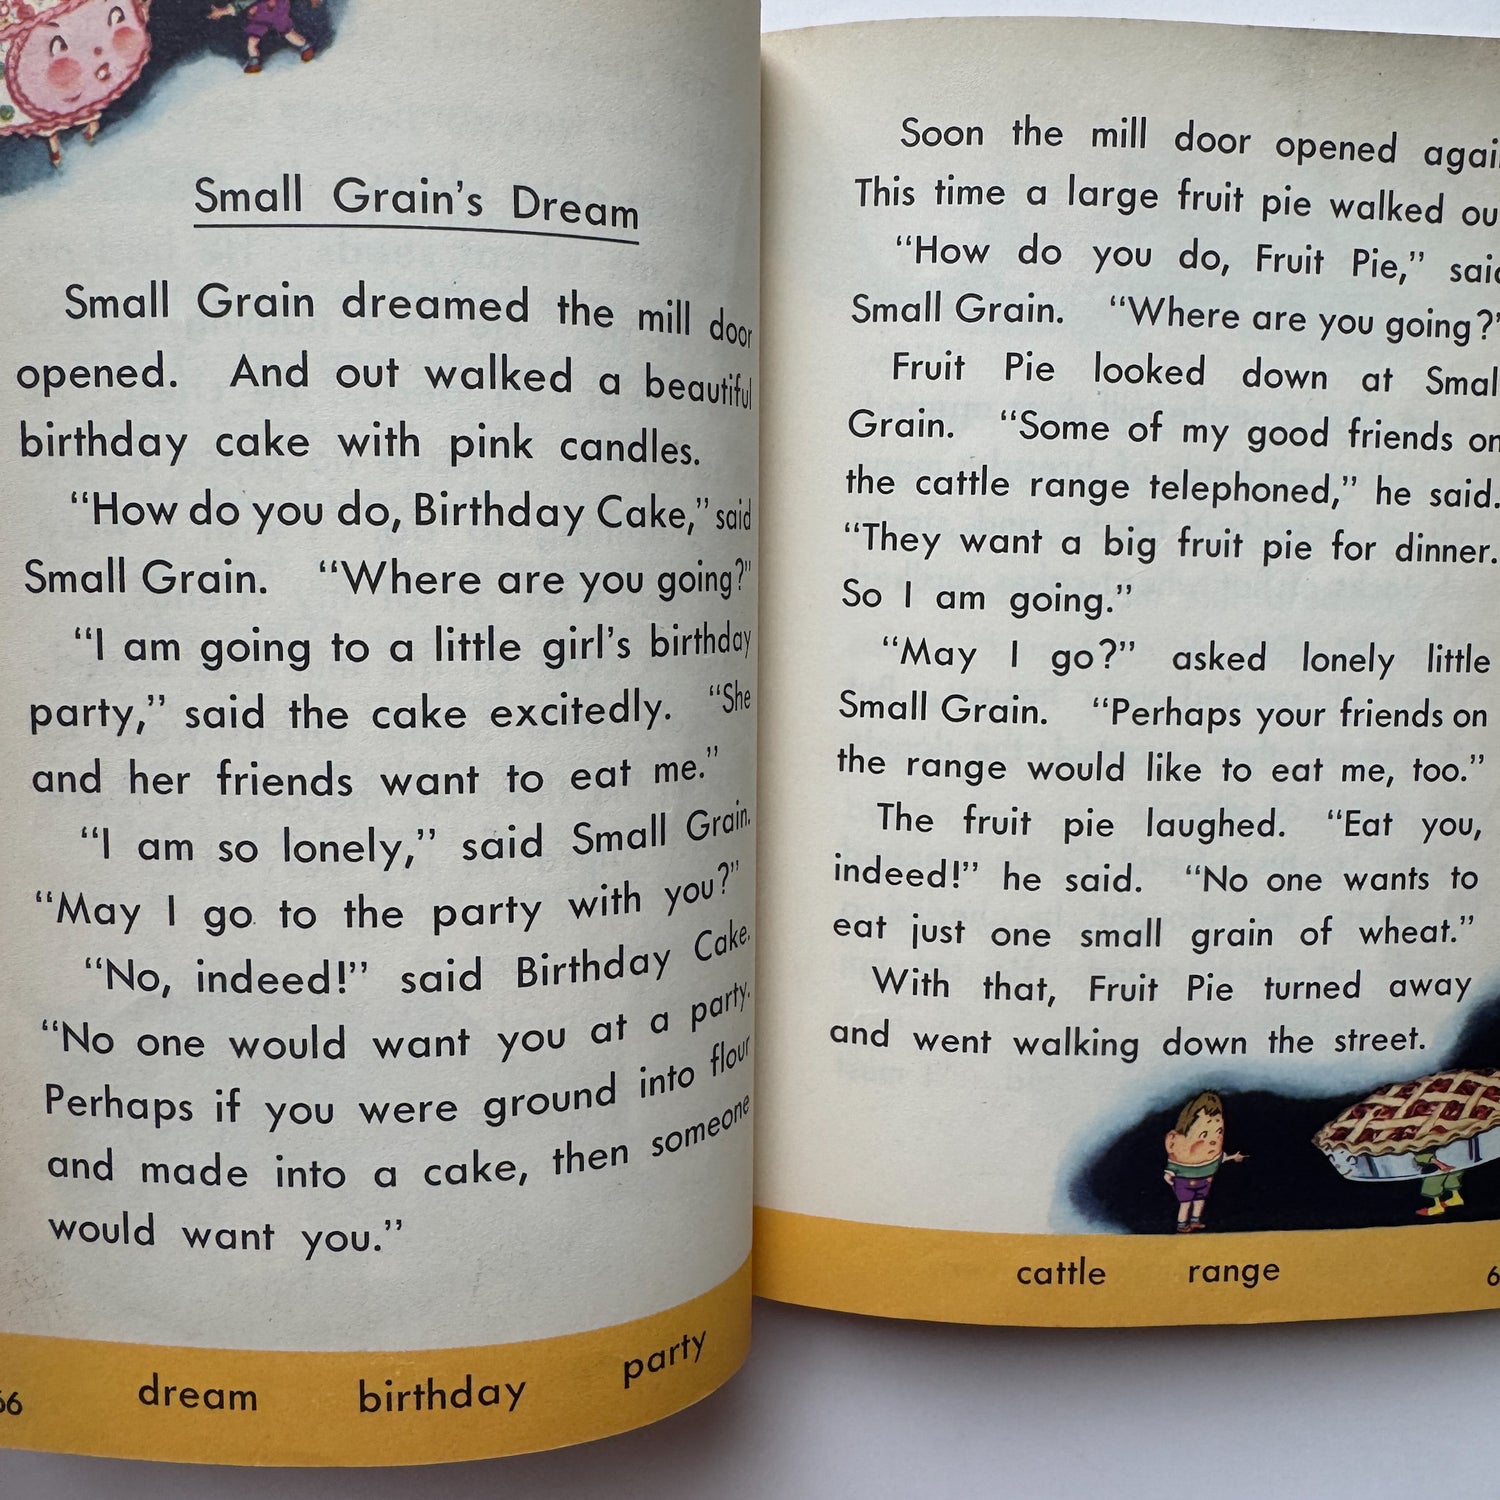 Small Grain's Dream
Small Grain dreamed the mill door
opened. And out walked a beautiful
birthday cake with pink candles.
"How do you do, Birthday Cake," said
Small Grain. "Where are you going?"
"I am going to a little girl's birthday
party," said the cake excitedly. "She
and her friends want to eat me."
"I am so lonely," said Small Grain.
"May I go to the party with you?"
"No, indeed!" said Birthday Cake.
"No one would want you at a party.
Perhaps if you were ground into flour
and made into a cake, then someone
would want you."
66 dream birthday party
Soon the mill door opened again
This time a large fruit pie walked ou
"How do you do, Fruit Pie," said
Small Grain. "Where are you going?"
Fruit Pie looked down at Small
Grain. "Some of my good friends on
the cattle range telephoned," he said.
"They want a big fruit pie for dinner.
So I am going."
"May I go?" asked lonely little
Small Grain. "Perhaps your friends on
the range would like to eat me, too."
The fruit pie laughed. "Eat you,
indeed!" he said. "No one wants to
eat just one small grain of wheat."
With that, Fruit Pie turned away
and went walking down the street.
cattle range 6